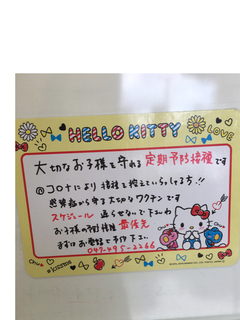 HELLO KITTY
LOVE
大切なお子様を守る定期予防接種です
◎コロナにより接種を控えていらっしゃる方!!
感染症から守る大切なワクチンです
スケジュール 遅らせないで下さい
お子様の予防接種 最優先
まずはお電話で予約下さい
049-495-2266